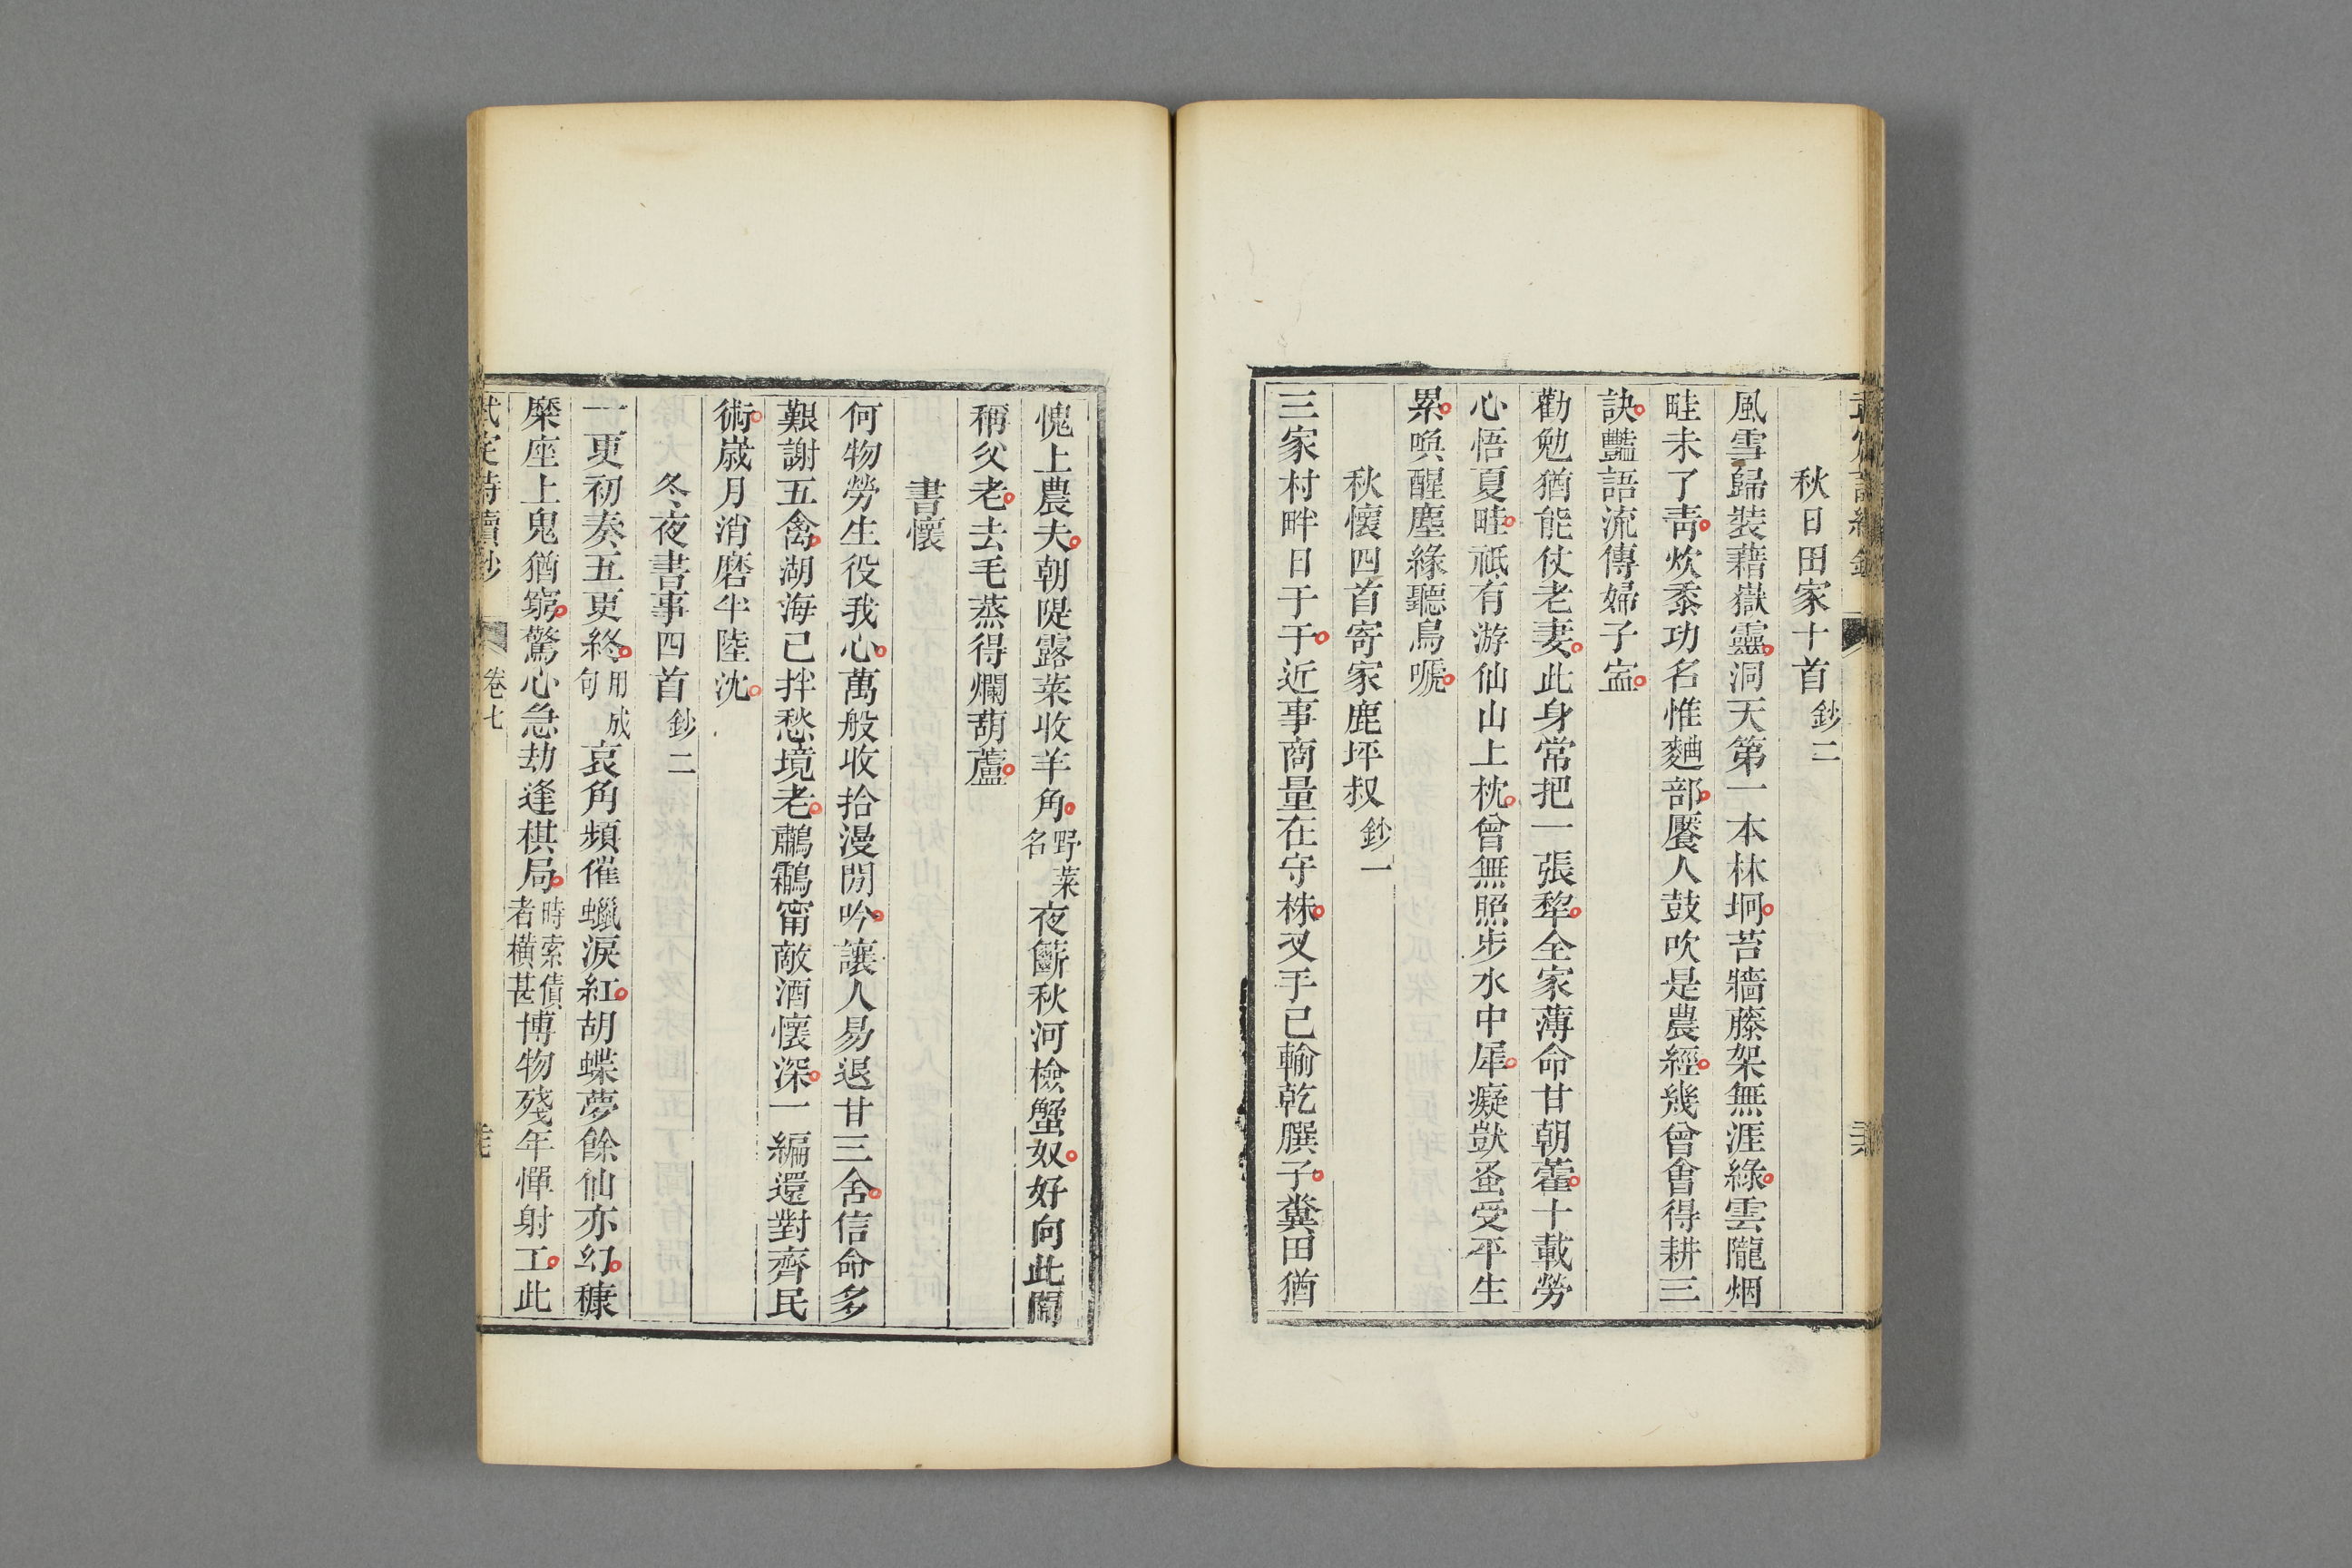 秋日田家十首鈔二
風雪歸裝藉嶽靈洞天第一本林坰苔牆藤架無涯綠雲隴烟
畦未了靑炊黍功名惟麯部饜人鼓吹是農經幾曾會得耕三
訣豔語流傳婦子寍
勸勉猶能仗老妻此身常把一張犂全家薄命甘朝藿十載勞
心悟夏畦祇有游仙山上枕曾無照步水中犀癡獃蚤受平生
累喚醒塵緣聽鳥嗁
秋懷四首寄家鹿坪叔鈔一
三家村畔日于于近事商量在守株叉手已輸乾䐪子糞田猶
愧上農夫朝隄露菜收羊角野菜名夜籪秋河檢蟹奴好向此閒
稱父老去毛蒸得爛葫蘆
書懷
何物勞生役我心萬般收拾漫閒吟讓人易退甘三舍信命多
艱謝五禽湖海已拌愁境老鸘甯敵酒懷深一編還對齊民
術嵗月消磨半陸沈
冬夜書事四首鈔二
一更初奏五更終用成句哀角頻催蠟淚紅胡蝶夢餘仙亦幻穅
糜座上鬼猶窮驚心急劫逢棋局時索債者橫甚博物殘年憚射工此
武定詩續鈔 卷七